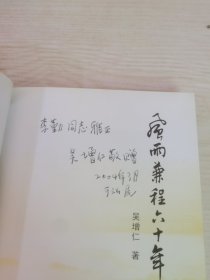 李勤同志雅正
吴增仁敬赠
2024年3月
風雨兼程六十年
吴增仁 著